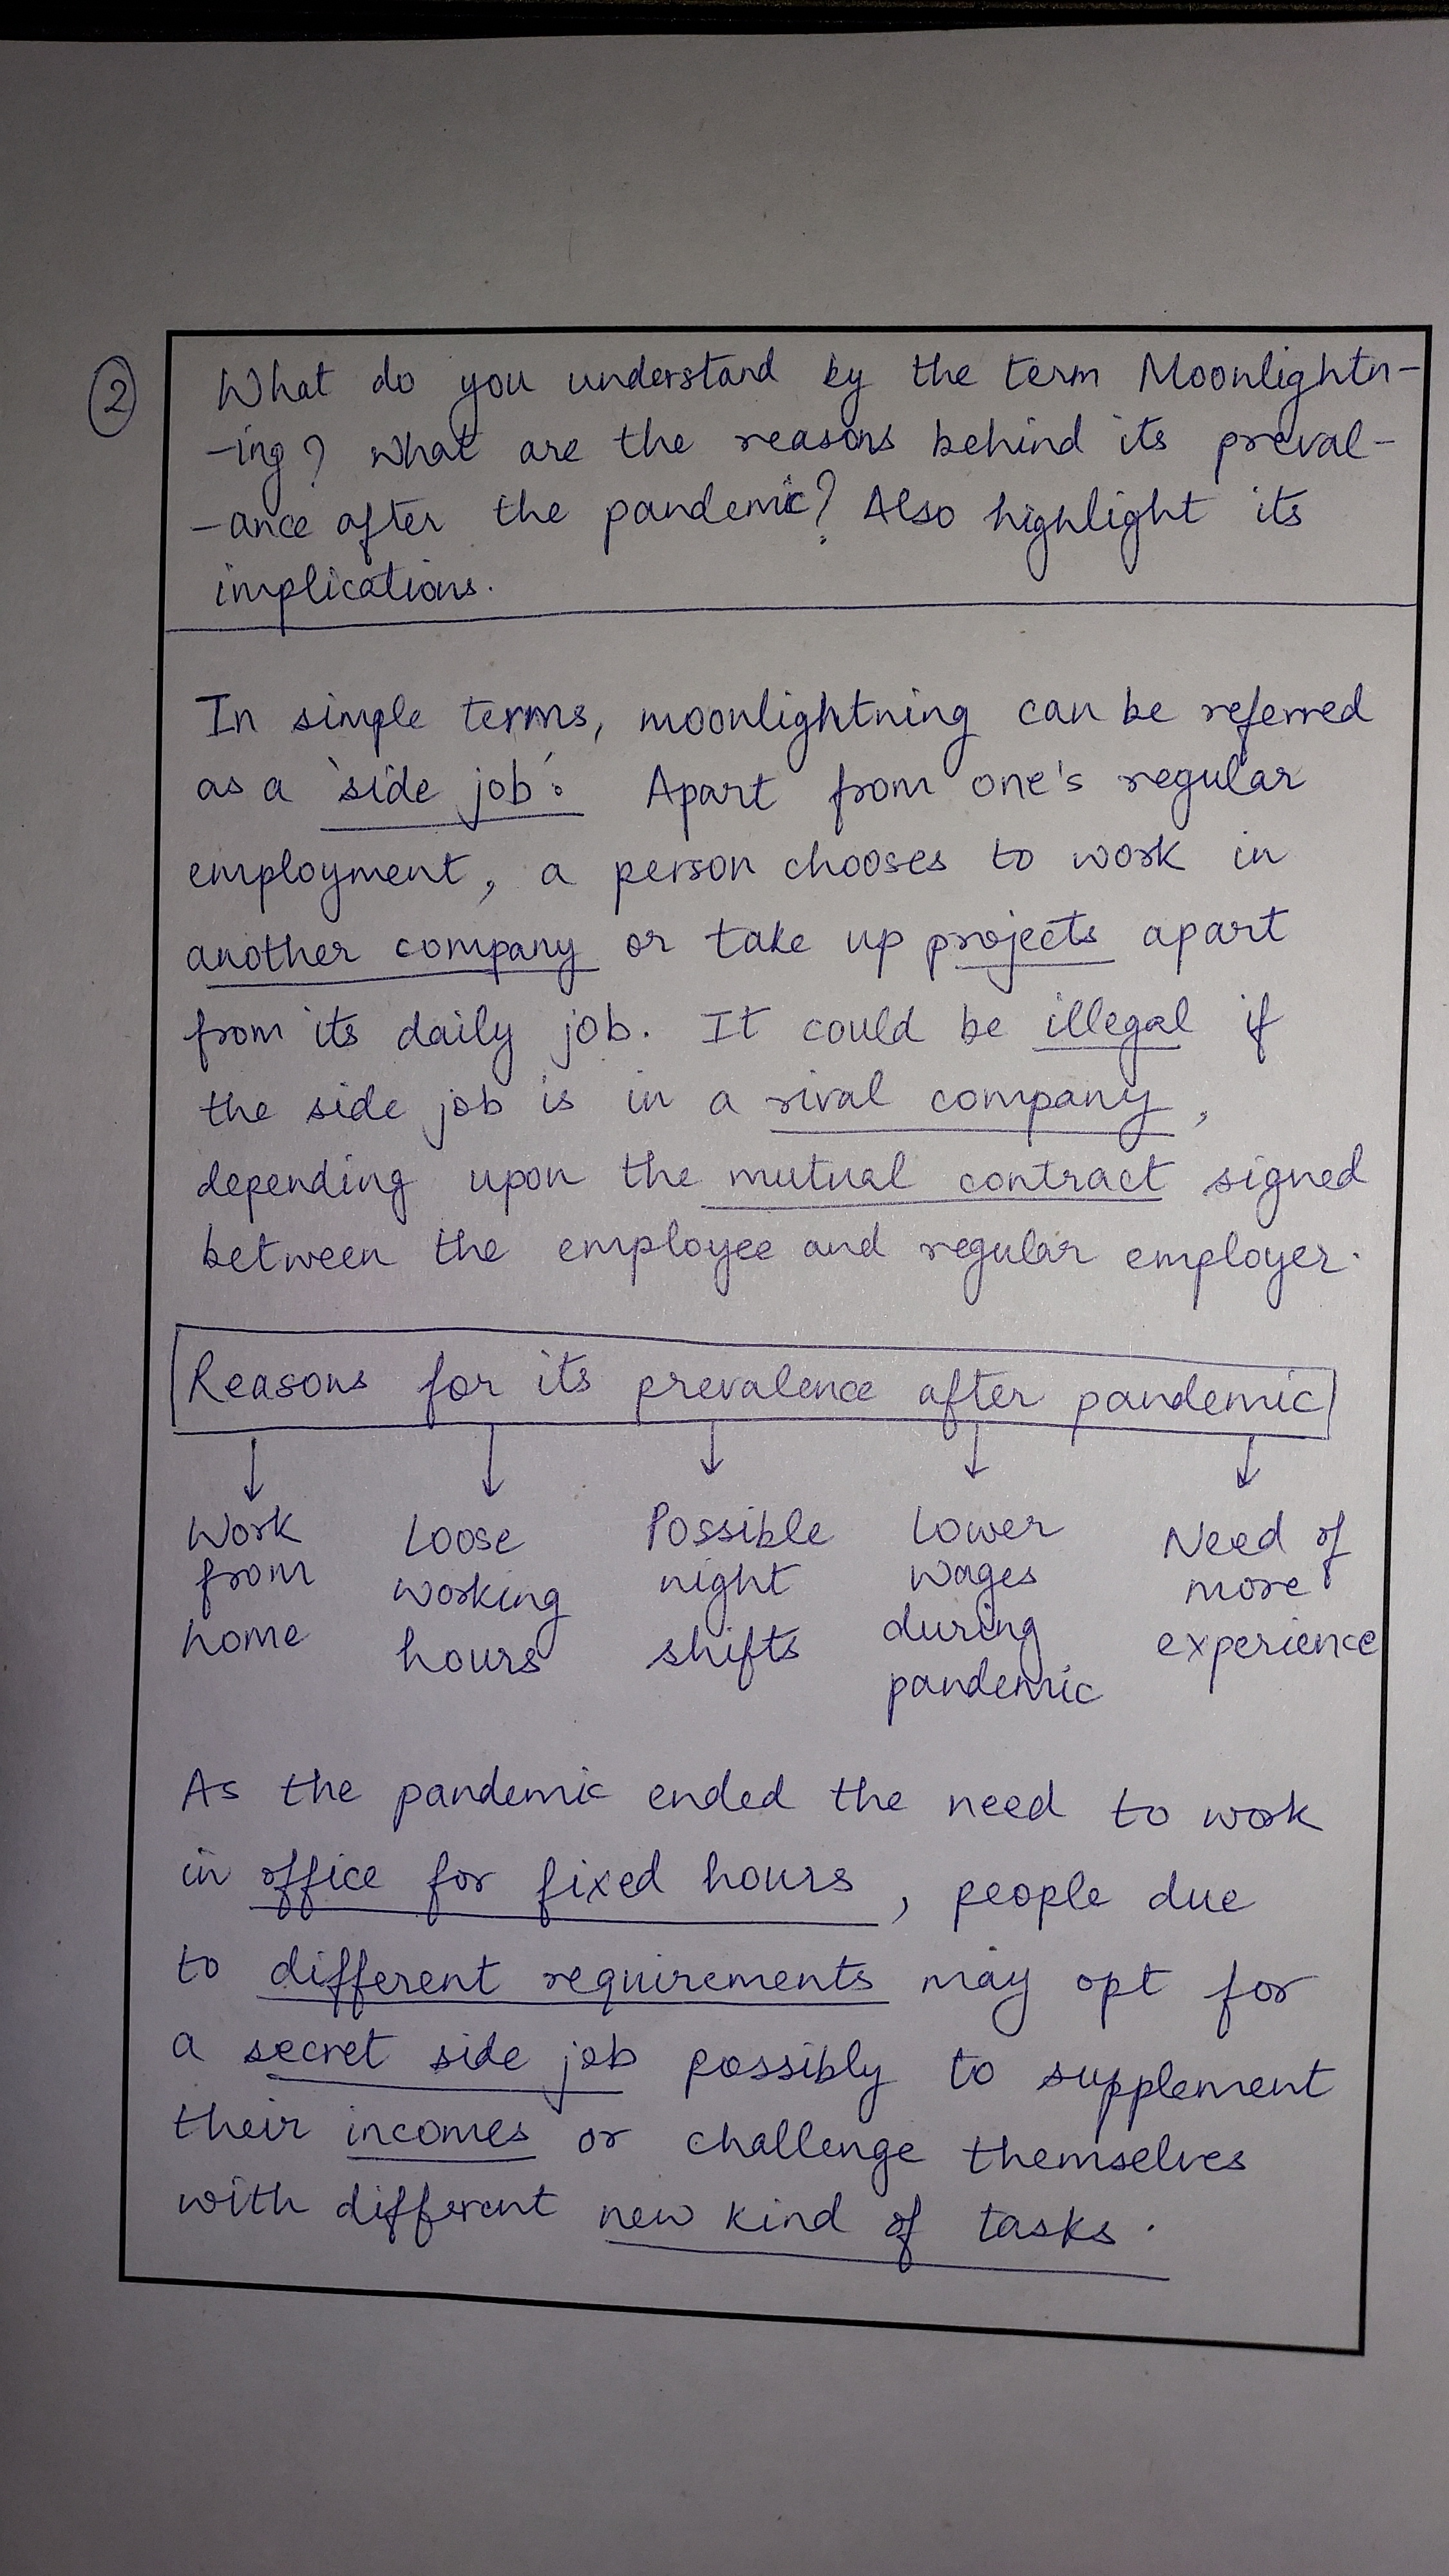 2
What do you understand by the term Moonlightn-
-ing? What are the reasons behind its preval-
-ance after the pandemic? Also highlight its
implications.
In simple terms, moonlightning can be referred
as a 'side job'. Apart from one's regular
employment, a person chooses to work in
another company or take up projects apart
from its daily job. It could be illegal if
the side job is in a rival company,
depending upon the mutual contract signed
between the employee and regular employer.
Reasons for its prevalence after pandemic
Work from home
Loose working hours
Possible night shifts
Lower wages during pandemic
Need of more experience
As the pandemic ended the need to work
in office for fixed hours, people due
to different requirements may opt for
a secret side job possibly to supplement
their incomes or challenge themselves
with different new kind of tasks.